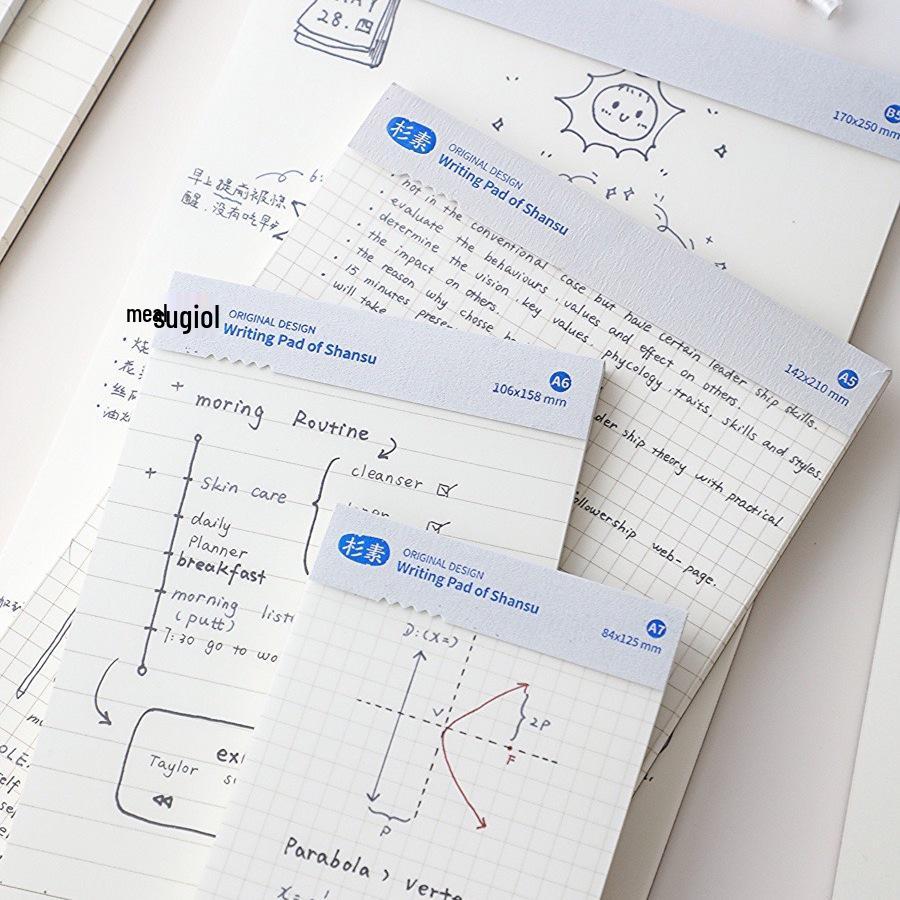 28.四
B5
170x250 mm
早上提前被惊
醒，没有吃早点
杉素
ORIGINAL DESIGN
Writing Pad of Shansu
142x210 mm
A5
not in the conventional case but have certain leader ship skills.
evaluate the behaviours, values and effect on others.
determine the vision, key values, phycology, traits, skills and styles.
the impact on others.
the reason why chosse
15 minutes
will take
der ship theory with practical
ollowership web-page.
sugiol
ORIGINAL DESIGN
Writing Pad of Shansu
A6
106x158 mm
moring Routine
skin care
cleanser
daily
planner
breakfast
morning
(putt)
7:30 go to wo
Taylor
杉素
ORIGINAL DESIGN
Writing Pad of Shansu
A7
84x125 mm
V
2P
F
P
Parabola > verte